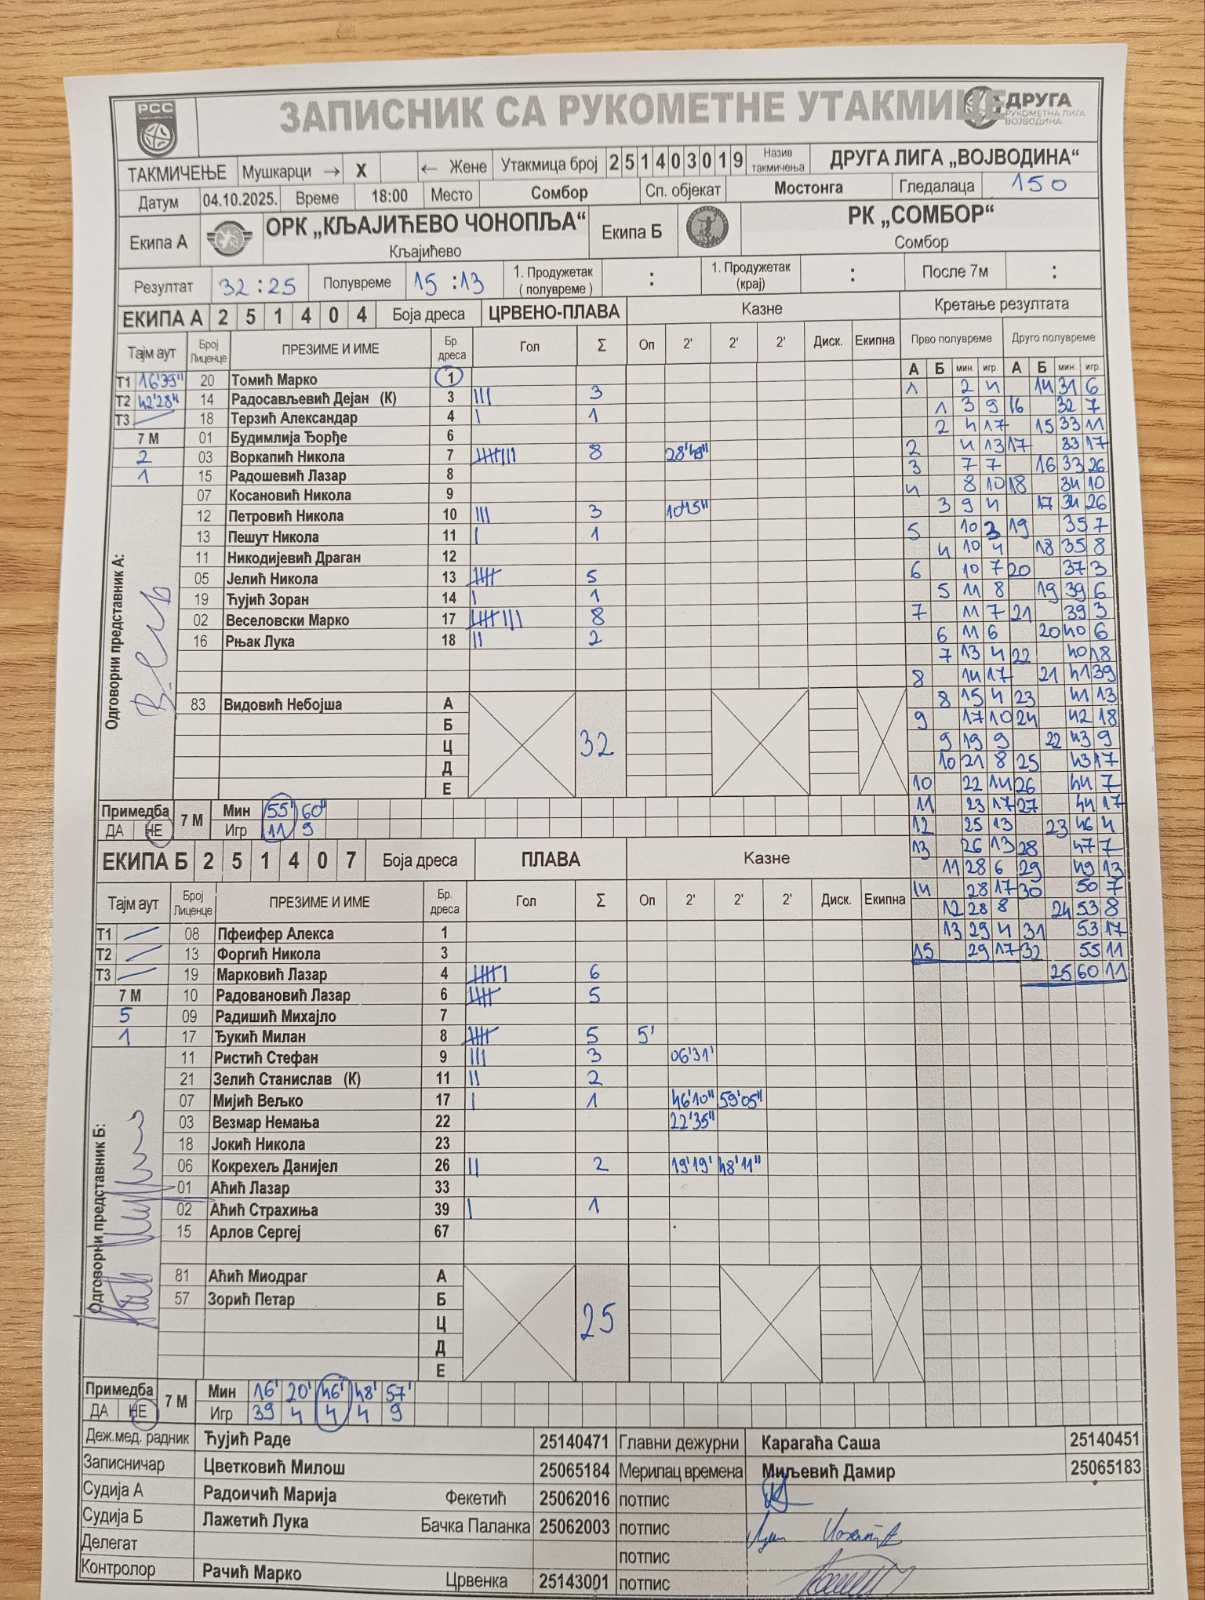 РСС
ЗАПИСНИК СА РУКОМЕТНЕ УТАКМИЦЕ
ДРУГА
РУКОМЕТНА ЛИГА
ВОЈВОДИНА
ТАКМИЧЕЊЕ Мушкарци → X ← Жене Утакмица број 2 5 1 4 0 3 0 1 9 Назив такмичења ДРУГА ЛИГА „ВОЈВОДИНА“
Датум 04.10.2025. Време 18:00 Место Сомбор Сп. објекат Мостонга Гледалаца 150
Екипа А ОРК „КЉАЈИЋЕВО ЧОНОПЉА“ Екипа Б РК „СОМБОР“
Кљајићево Сомбор
Резултат 32:25 Полувреме 15:13 1. Продужетак ( полувреме ) : 1. Продужетак (крај) : После 7м :
ЕКИПА А 2 5 1 4 0 4 Боја дреса ЦРВЕНО-ПЛАВА Казне Кретање резултата
Тајм аут Број Лиценце ПРЕЗИМЕ И ИМЕ Бр. дреса Гол Σ Оп 2' 2' 2' Диск. Екипна Прво полувреме Друго полувреме
А Б мин. игр. А Б мин. игр.
Т1 16'39" 20 Томић Марко 1
Т2 42'28" 14 Радосављевић Дејан (К) 3 III 3
Т3 18 Терзић Александар 4 I 1
7 М 01 Будимлија Ђорђе 6
2 03 Воркапић Никола 7 IIIII III 8 28'49"
1 15 Радошевић Лазар 8
07 Косановић Никола 9
12 Петровић Никола 10 III 3 10'15"
13 Пешут Никола 11 I 1
11 Никодијевић Драган 12
05 Јелић Никола 13 IIIII 5
19 Ђујић Зоран 14 I 1
02 Веселовски Марко 17 IIIII III 8
16 Рњак Лука 18 II 2
Одговорни представник А:
83 Видовић Небојша А
Б
Ц 32
Д
Е
Примедба ДА НЕ 7 М Мин 55' 60'
Игр 11 9
1 2 4 14 31 6
1 3 9 16 32 7
2 4 17 15 33 11
2 4 13 17 33 17
3 7 7 16 33 26
4 8 10 18 34 10
3 9 4 17 34 26
5 10 3 19 35 7
4 10 4 18 35 8
6 10 7 20 37 3
5 11 8 19 39 6
7 11 7 21 39 3
6 11 6 20 40 6
7 13 4 22 40 18
8 14 17 21 41 39
8 15 4 23 41 13
9 17 10 24 42 18
9 19 9 22 43 9
10 21 8 25 43 17
10 22 14 26 44 7
11 23 17 27 44 17
12 25 13 23 46 4
13 26 13 28 47 7
11 28 6 29 49 13
14 28 17 30 50 7
12 28 8 24 53 8
13 29 4 31 53 17
15 29 17 32 55 11
25 60 11
ЕКИПА Б 2 5 1 4 0 7 Боја дреса ПЛАВА Казне
Тајм аут Број Лиценце ПРЕЗИМЕ И ИМЕ Бр. дреса Гол Σ Оп 2' 2' 2' Диск. Екипна
Т1 08 Пфеифер Алекса 1
Т2 13 Форгић Никола 3
Т3 19 Марковић Лазар 4 IIIII I 6
7 М 10 Радовановић Лазар 6 IIIII 5
5 09 Радишић Михајло 7
1 17 Ђукић Милан 8 IIIII 5 5'
11 Ристић Стефан 9 III 3 06'31'
21 Зелић Станислав (К) 11 II 2
07 Мијић Вељко 17 I 1 46'10" 59'05"
03 Везмар Немања 22 22'35"
18 Јокић Никола 23
06 Кокрехељ Данијел 26 II 2 19'19' 48'11"
01 Аћић Лазар 33
02 Аћић Страхиња 39 I 1
15 Арлов Сергеј 67
Одговорни представник Б:
81 Аћић Миодраг А
57 Зорић Петар Б
Ц 25
Д
Е
Примедба ДА НЕ 7 М Мин 16' 20' 46' 48' 57'
Игр 39 4 4 4 9
Деж.мед. радник Ђујић Раде 25140471 Главни дежурни Карагаћа Саша 25140451
Записничар Цветковић Милош 25065184 Мерилац времена Миљевић Дамир 25065183
Судија А Радоичић Марија Фекетић 25062016 потпис
Судија Б Лажетић Лука Бачка Паланка 25062003 потпис
Делегат потпис
Контролор Рачић Марко Црвенка 25143001 потпис